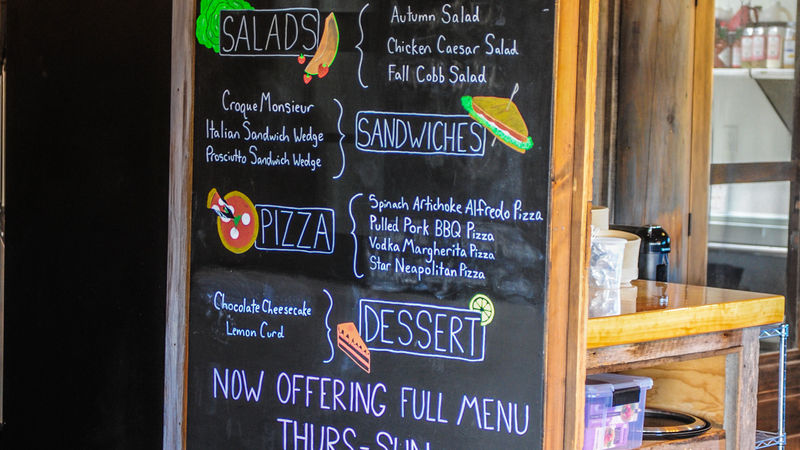 SALADS
Autumn Salad
Chicken Caesar Salad
Fall Cobb Salad
Croque Monsieur
Italian Sandwich Wedge
Prosciutto Sandwich Wedge
SANDWICHES
PIZZA
Spinach Artichoke Alfredo Pizza
Pulled Pork BBQ Pizza
Vodka Margherita Pizza
Star Neapolitan Pizza
Chocolate Cheesecake
Lemon Curd
DESSERT
NOW OFFERING FULL MENU
THURS-SUN